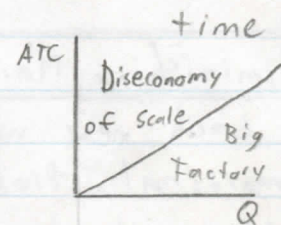 time
ATC
Diseconomy
of scale
Big
Factory
Q